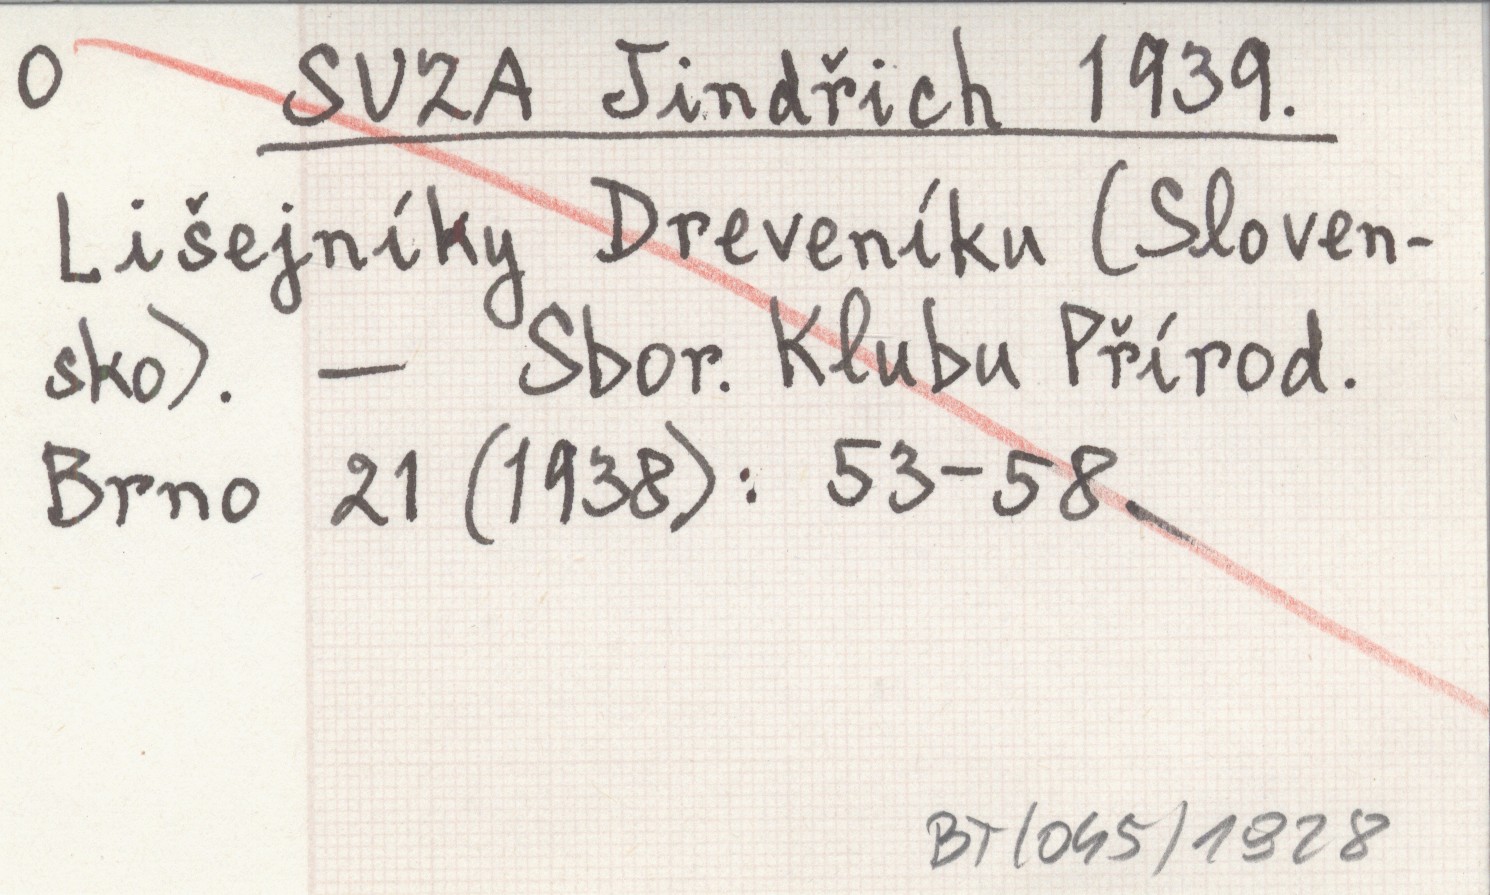 O SUZA Jindřich 1939.
Lišejníky Dreveníku (Sloven-
sko). — Sbor. Klubu Přírod.
Brno 21 (1938): 53-58
BT(045)1928